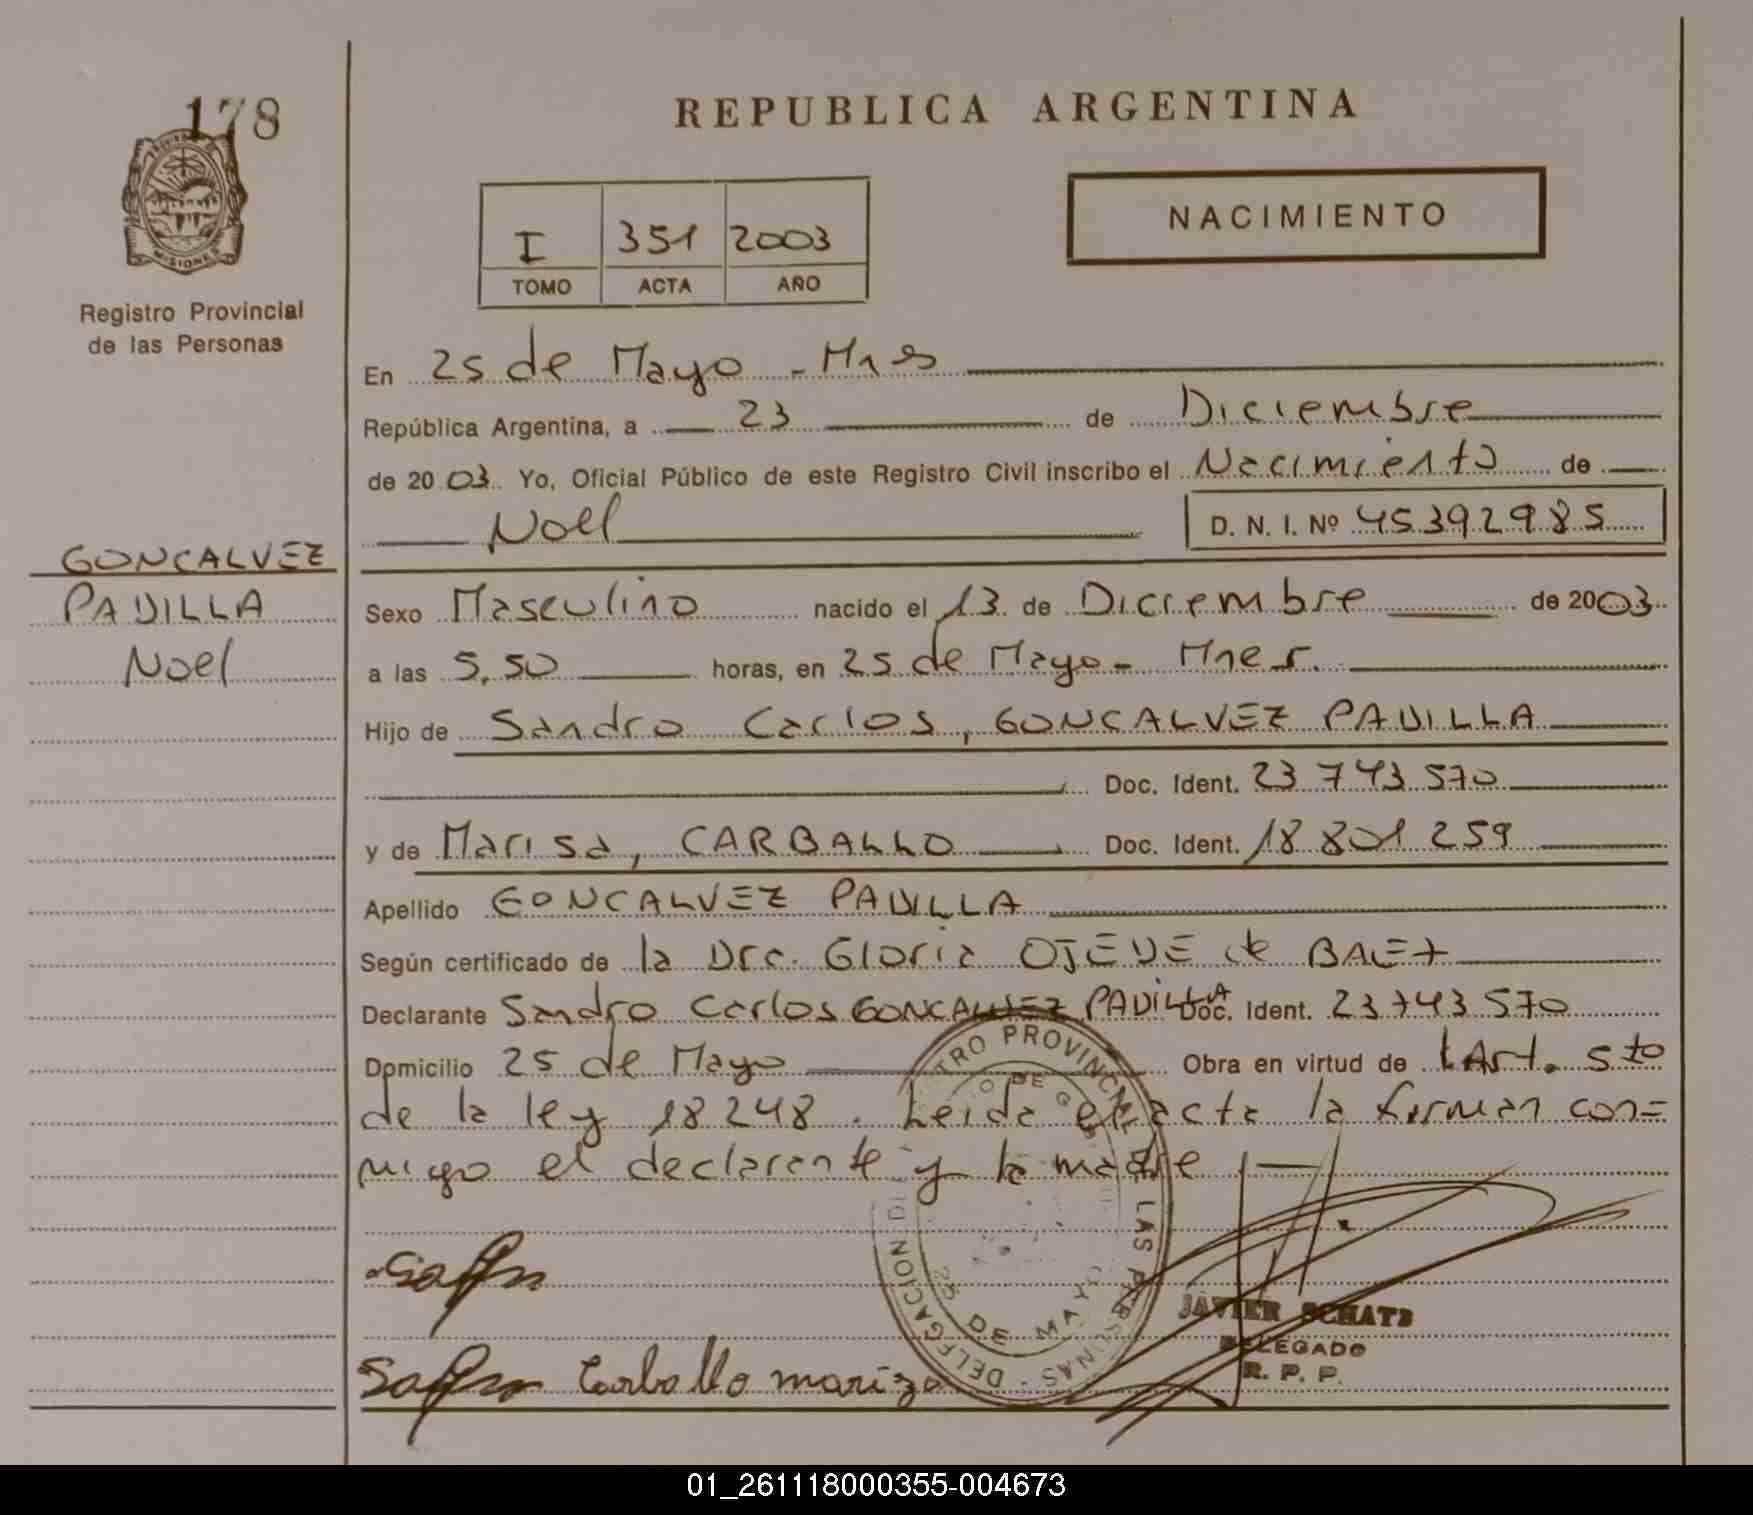 178
MISIONES
Registro Provincial
de las Personas
REPUBLICA ARGENTINA
I 351 2003
TOMO ACTA AÑO
NACIMIENTO
En 25 de Mayo - Mnes
República Argentina, a 23 de Diciembre
de 2003 Yo, Oficial Público de este Registro Civil inscribo el Nacimiento de
Noel D. N. I. Nº 45392985
GONCALVEZ
PADILLA
Noel
Sexo Masculino nacido el 13 de Diciembre de 2003
a las 5,50 horas, en 25 de Mayo - Mnes.
Hijo de Sandro Carlos, GONCALVEZ PADILLA
Doc. Ident. 23 743 570
y de Marisa, CARBALLO Doc. Ident. 18 801 259
Apellido GONCALVEZ PADILLA
Según certificado de la Dra. Gloria OJEDE de BAEZ
Declarante Sandro Carlos GONCALVEZ PADILLA Doc. Ident. 23743570
Domicilio 25 de Mayo Obra en virtud de Art. 5to
de la ley 18248. Leida el acta la firman con=
migo el declarante y la madre
DELEGACION 25 DE MAYO
JAVIER SCHATZ
DELEGADO
R. P. P.
Carballo mariza
01_261118000355-004673